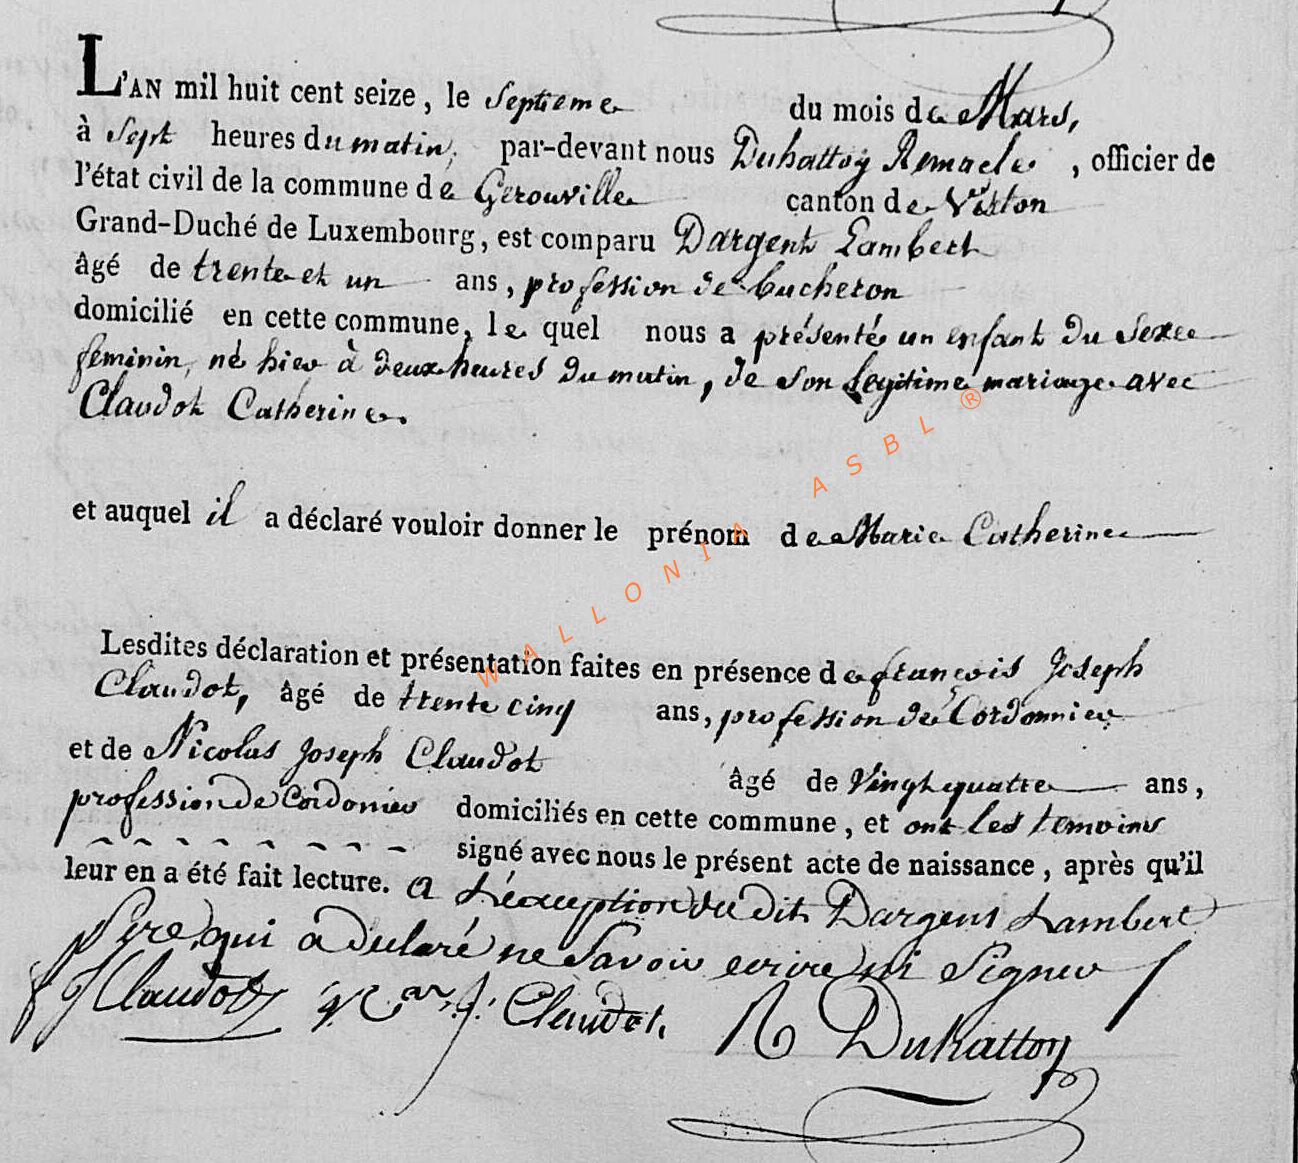 L'AN mil huit cent seize, le Septieme du mois de Mars,
à Sept heures du matin, par-devant nous Duhattoy Remacle, officier de
l'état civil de la commune de Gerouville canton de Virton
Grand-Duché de Luxembourg, est comparu Dargent Lambert
âgé de trente et un ans, profession de bucheron
domicilié en cette commune, le quel nous a présenté un enfant du Sexe
feminin, né hier à deux heures du matin, de son Legitime mariage avec
Claudot Catherine.
et auquel il a déclaré vouloir donner le prénom de Marie Catherine
Lesdites déclaration et présentation faites en présence de françois Joseph
Claudot, âgé de trente cinq ans, profession de Cordonnier
et de Nicolas Joseph Claudot âgé de Vingt quatre ans,
profession de Cordonier domiciliés en cette commune, et ont les temoins
signé avec nous le présent acte de naissance, après qu'il
leur en a été fait lecture. a L'exception du dit Dargent Lambert
Pere qui a déclaré ne Savoir ecrire ni Signer
f J Claudot J. Claudot. R Duhattoy
WALLONIA ASBL ®